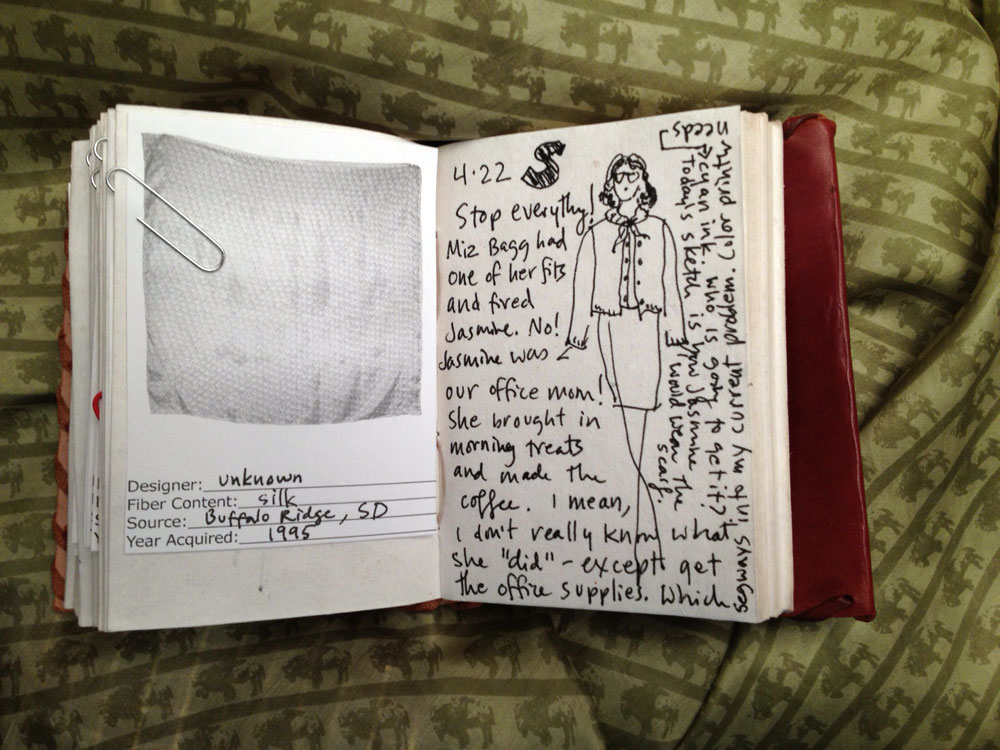 Designer: unknown
Fiber Content: silk
Source: Buffalo Ridge, SD
Year Acquired: 1995
4.22 S
Stop everythg!
Miz Bagg had
one of her fits
and fired
Jasmine. No!
Jasmine was
our office mom!
She brought in
morning treats
and made the
coffee. I mean,
I don't really know what
she "did" - except get
the office supplies. Which
segways into my current problem. Color printing
needs
cyan ink. Who is going to get it?
Today's sketch is how Jasmine
would wear the
scarf.